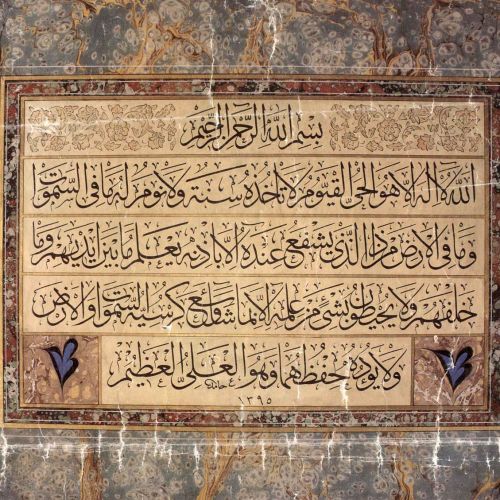 بسم الله الرحمن الرحيم
الله لا اله الا هو الحي القيوم لا تاخذه سنة ولا نوم له ما في السموات
وما في الارض من ذا الذي يشفع عنده الا باذنه يعلم ما بين ايديهم وما
خلفهم ولا يحيطون بشيء من علمه الا بما شاء وسع كرسيه السموات والارض
ولا يؤده حفظهما وهو العلي العظيم
حامد
١٣٩٥